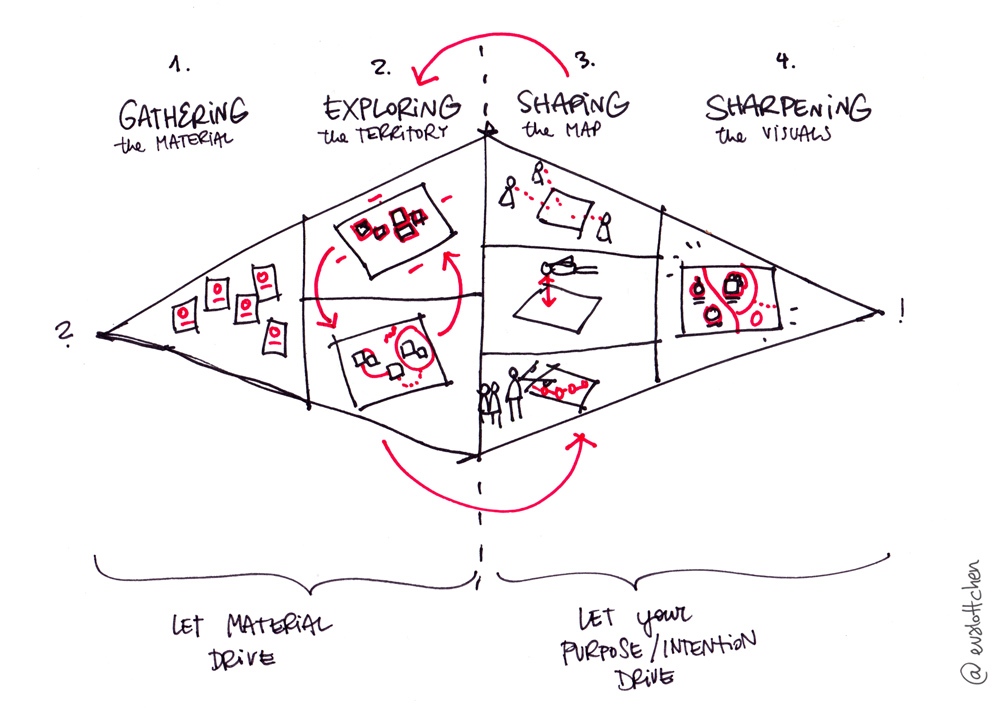 1.
GATHERING
the MATERIAL
2.
EXPLORING
the TERRITORY
3.
SHAPING
the MAP
4.
SHARPENING
the VISUALS
?
!
LET MATERIAL
DRIVE
LET your
PURPOSE/INTENTION
DRIVE
@evalottchen